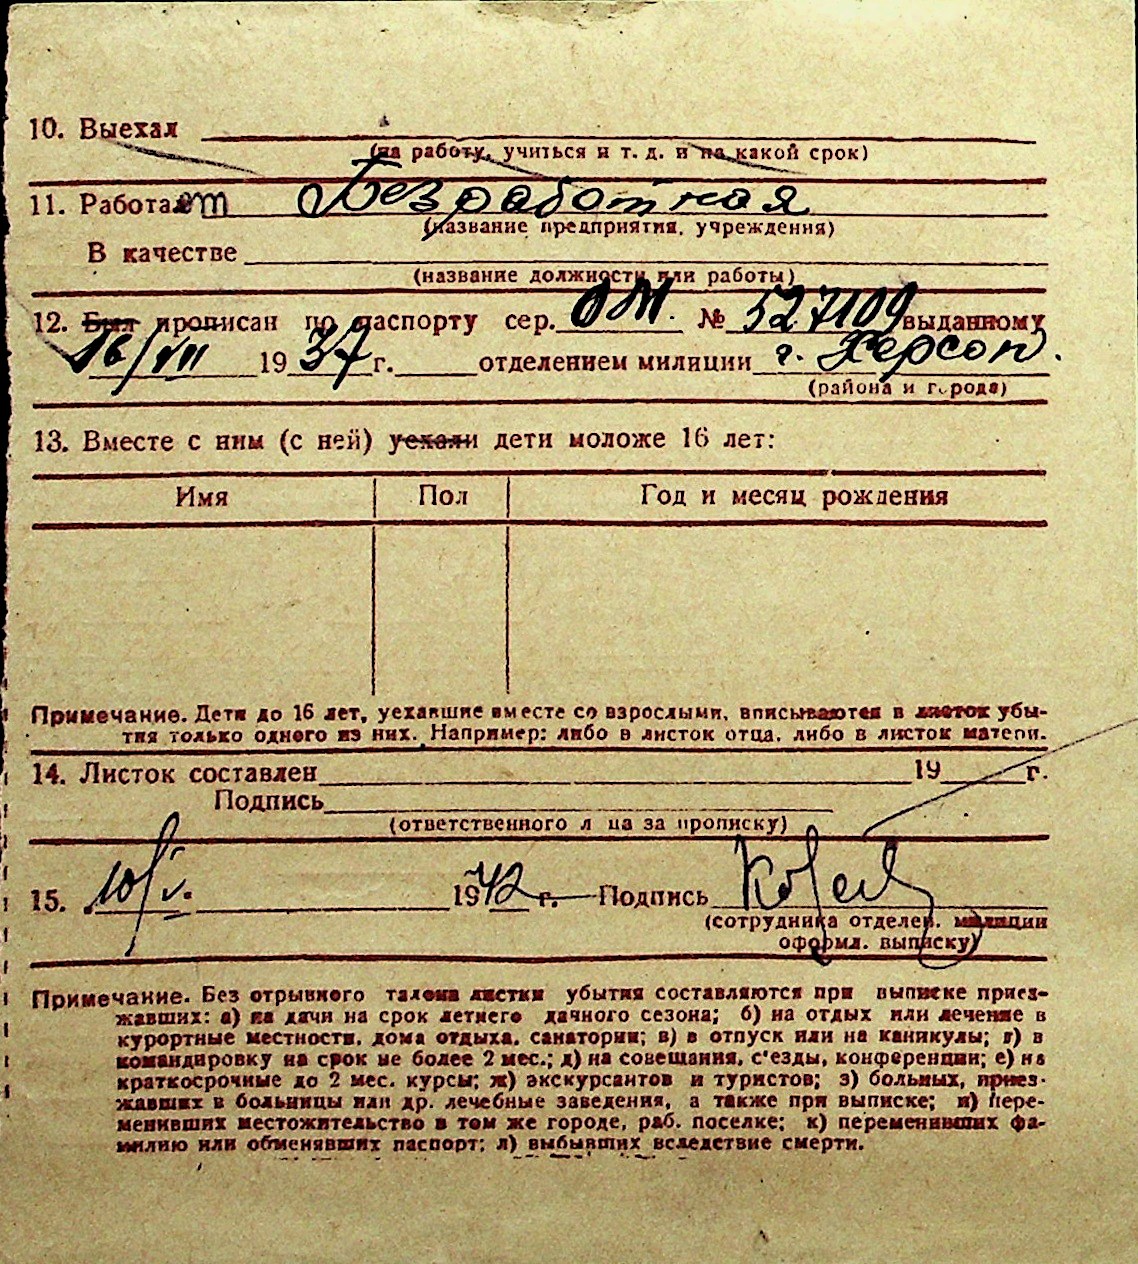 10. Выехал
(на работу, учиться и т. д. и на какой срок)
11. Работает Безработная
(название предприятия, учреждения)
В качестве
(название должности или работы)
12. Был прописан по паспорту сер. ОМ. № 527109 выданному
16/VII 1937 г. отделением милиции г. Херсон.
(района и города)
13. Вместе с ним (с ней) уехали дети моложе 16 лет:
Имя Пол Год и месяц рождения
Примечание. Дети до 16 лет, уехавшие вместе со взрослыми, вписываются в листок убы-
тия только одного из них. Например: либо в листок отца, либо в листок матери.
14. Листок составлен 19 г.
Подпись
(ответственного лица за прописку)
15. 10/V. 1942 г. Подпись
(сотрудника отделен. милиции
оформл. выписку)
Примечание. Без отрывного талона листки убытия составляются при выписке приез-
жавших: а) на дачи на срок летнего дачного сезона; б) на отдых или лечение в
курортные местности, дома отдыха, санатории; в) в отпуск или на каникулы; г) в
командировку на срок не более 2 мес.; д) на совещания, с'езды, конференции; е) на
краткосрочные до 2 мес. курсы; ж) экскурсантов и туристов; з) больных, приез-
жавших в больницы или др. лечебные заведения, а также при выписке; и) пере-
менивших местожительство в том же городе, раб. поселке; к) переменивших фа-
милию или обменявших паспорт; л) выбывших вследствие смерти.